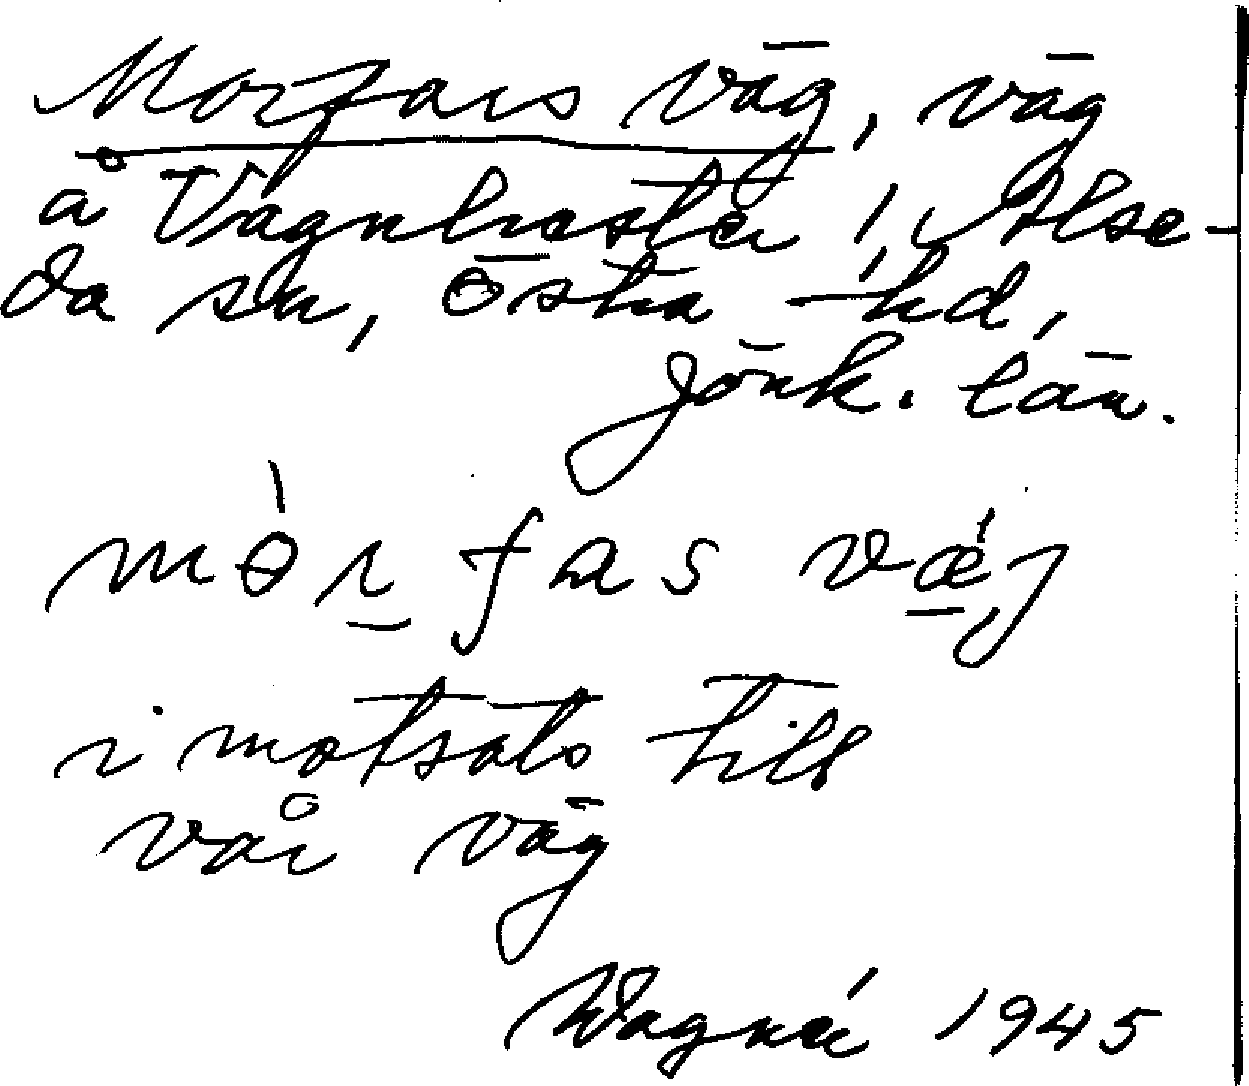 Morfars väg, väg
å Vagnhester i Alse-
da sn, Östra hd,
Jönk. län.
mòr fas væ̀j
i motsats till
vår väg
Wagnér 1945